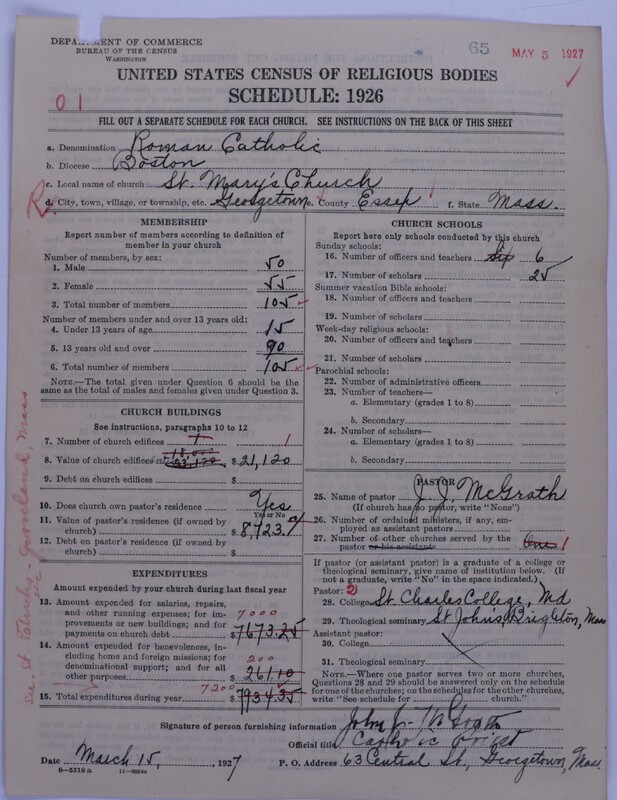 DEPARTMENT OF COMMERCE
BUREAU OF THE CENSUS
WASHINGTON
65
MAY 5 1927
UNITED STATES CENSUS OF RELIGIOUS BODIES
SCHEDULE: 1926
01
FILL OUT A SEPARATE SCHEDULE FOR EACH CHURCH. SEE INSTRUCTIONS ON THE BACK OF THIS SHEET
a. Denomination Roman Catholic
b. Diocese Boston
c. Local name of church St. Mary's Church
d. City, town, village, or township, etc. Georgetown e. County Essex f. State Mass.
MEMBERSHIP
Report number of members according to definition of member in your church
Number of members, by sex:
1. Male 50
2. Female 55
3. Total number of members 105
Number of members under and over 13 years old:
4. Under 13 years of age 15
5. 13 years old and over 90
6. Total number of members 105
NOTE.—The total given under Question 6 should be the same as the total of males and females given under Question 3.
CHURCH BUILDINGS
See instructions, paragraphs 10 to 12
7. Number of church edifices 1 1
8. Value of church edifices $ 21,120
9. Debt on church edifices $
10. Does church own pastor's residence Yes
Yes or No
11. Value of pastor's residence (if owned by church) $ 8,723.
12. Debt on pastor's residence (if owned by church) $
EXPENDITURES
Amount expended by your church during last fiscal year
13. Amount expended for salaries, repairs, and other running expenses; for improvements or new buildings; and for payments on church debt $ 7673.25
7000
14. Amount expended for benevolences, including home and foreign missions; for denominational support; and for all other purposes $ 261.10
200
15. Total expenditures during year $ 7934.35
7200
CHURCH SCHOOLS
Report here only schools conducted by this church
Sunday schools:
16. Number of officers and teachers Six 6
17. Number of scholars 25
Summer vacation Bible schools:
18. Number of officers and teachers
19. Number of scholars
Week-day religious schools:
20. Number of officers and teachers
21. Number of scholars
Parochial schools:
22. Number of administrative officers
23. Number of teachers—
a. Elementary (grades 1 to 8)
b. Secondary
24. Number of scholars—
a. Elementary (grades 1 to 8)
b. Secondary
PASTOR
25. Name of pastor J. J. McGrath
(If church has no pastor, write "None")
26. Number of ordained ministers, if any, employed as assistant pastors
27. Number of other churches served by the pastor or his assistants One 1
If pastor (or assistant pastor) is a graduate of a college or theological seminary, give name of institution below. (If not a graduate, write "No" in the space indicated.)
Pastor: 2
28. College St. Charles College, Md
29. Theological seminary St Johns, Brighton, Mass
Assistant pastor:
30. College
31. Theological seminary
NOTE.—Where one pastor serves two or more churches, Questions 28 and 29 should be answered only on the schedule for one of the churches; on the schedules for the other churches, write "See schedule for church."
Signature of person furnishing information John J. McGrath
Official title Catholic Priest
Date March 15, 1927
P. O. Address 63 Central St., Georgetown, Mass.
8-5518a